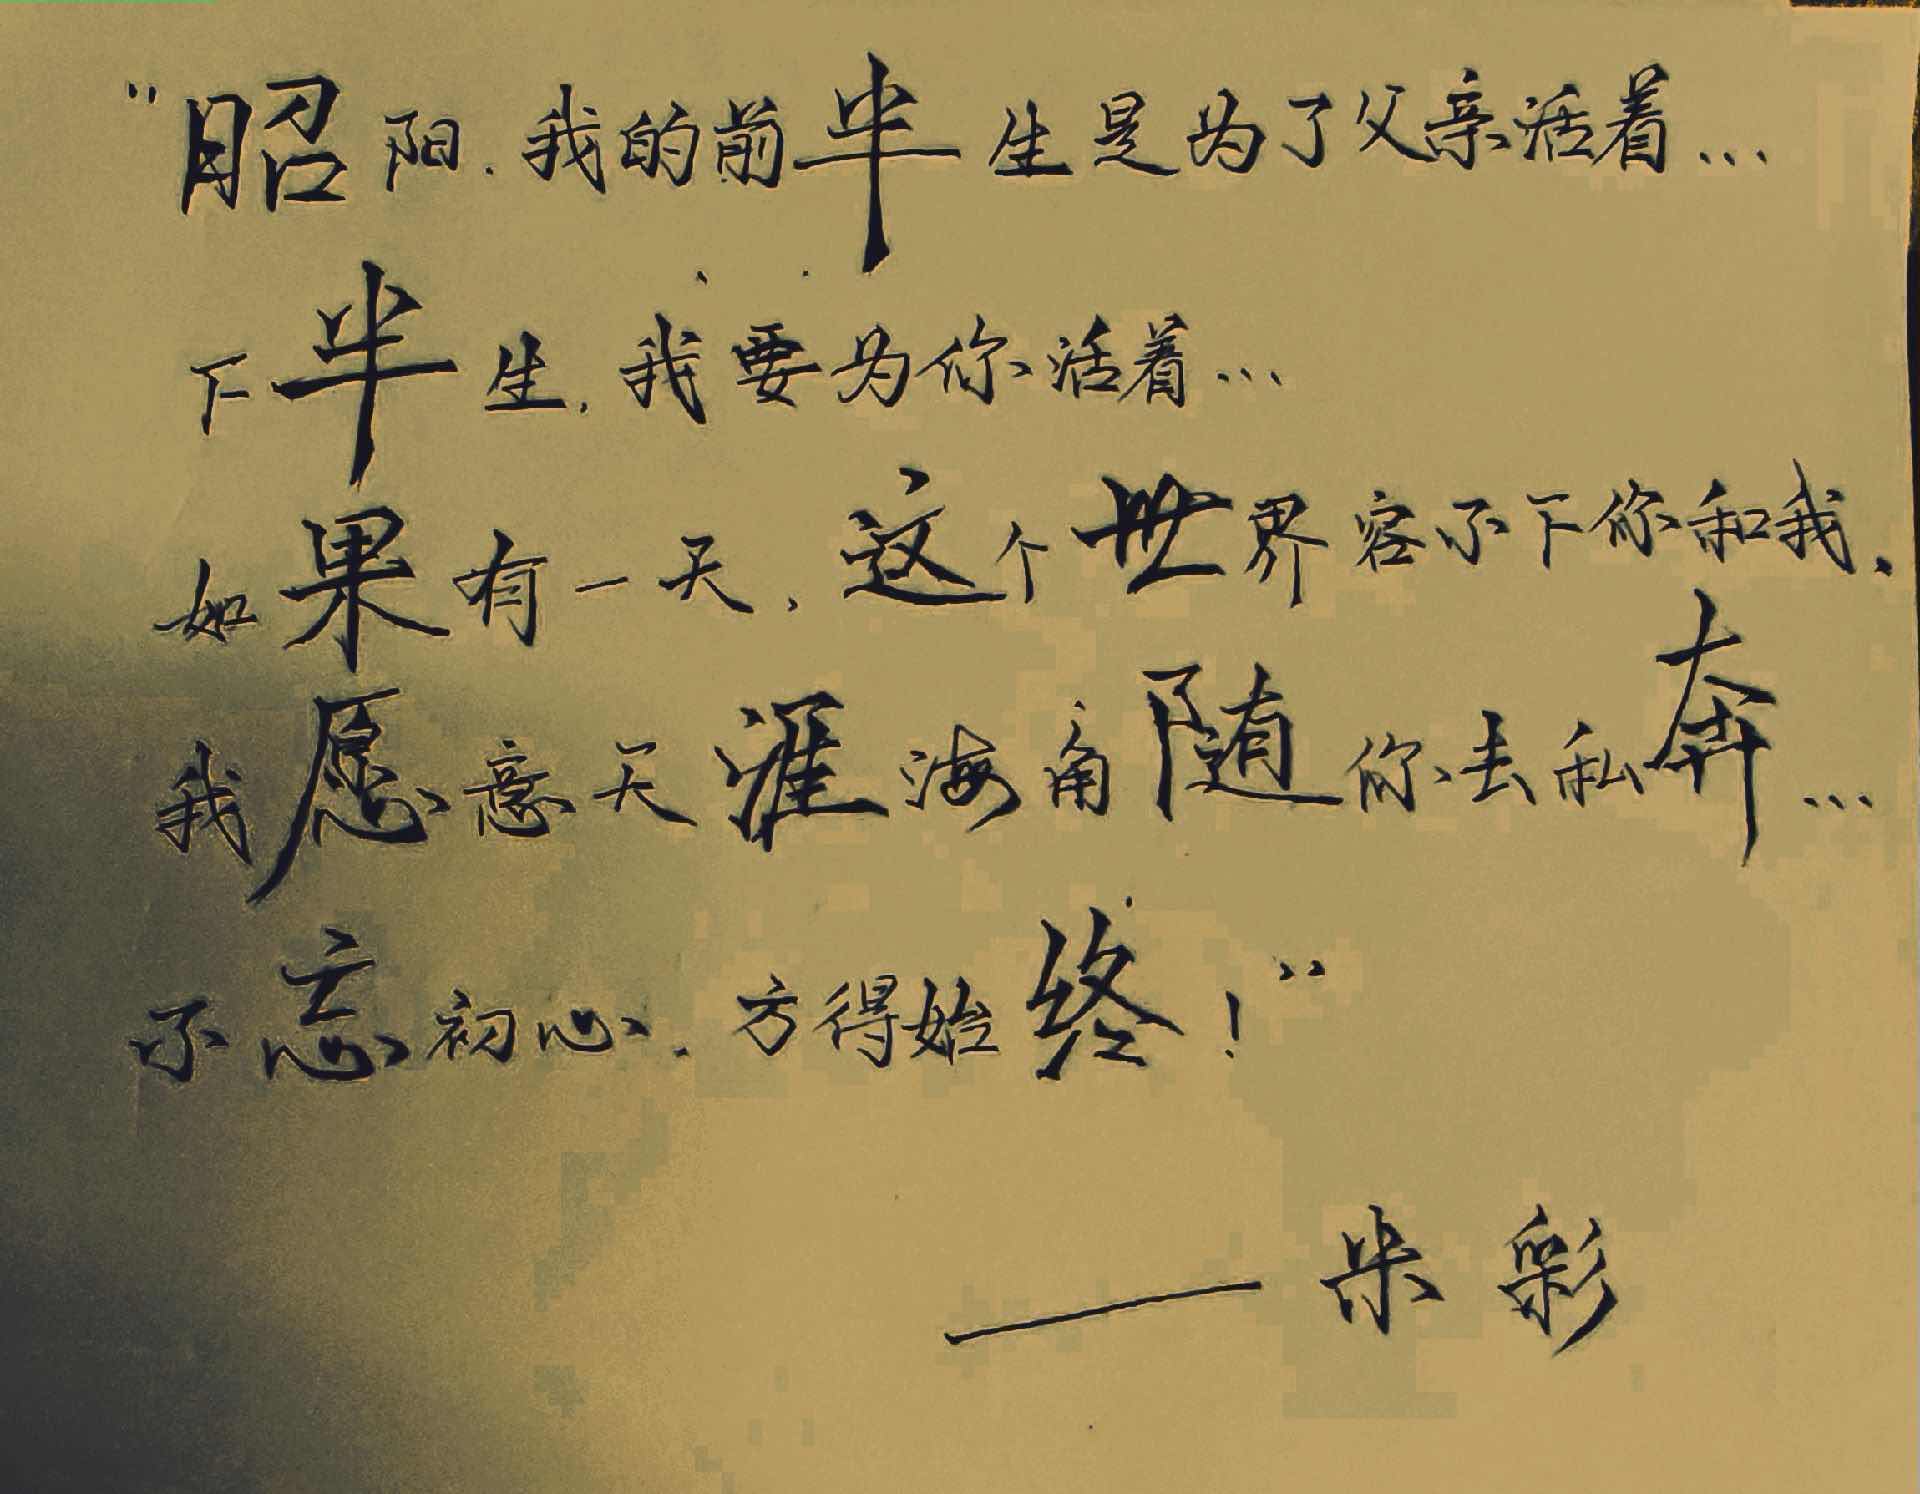 "昭阳.我的前半生是为了父亲活着...
下半生.我要为你活着...
如果有一天.这个世界容不下你和我.
我愿意天涯海角随你去私奔...
不忘初心.方得始终!"
——米彩